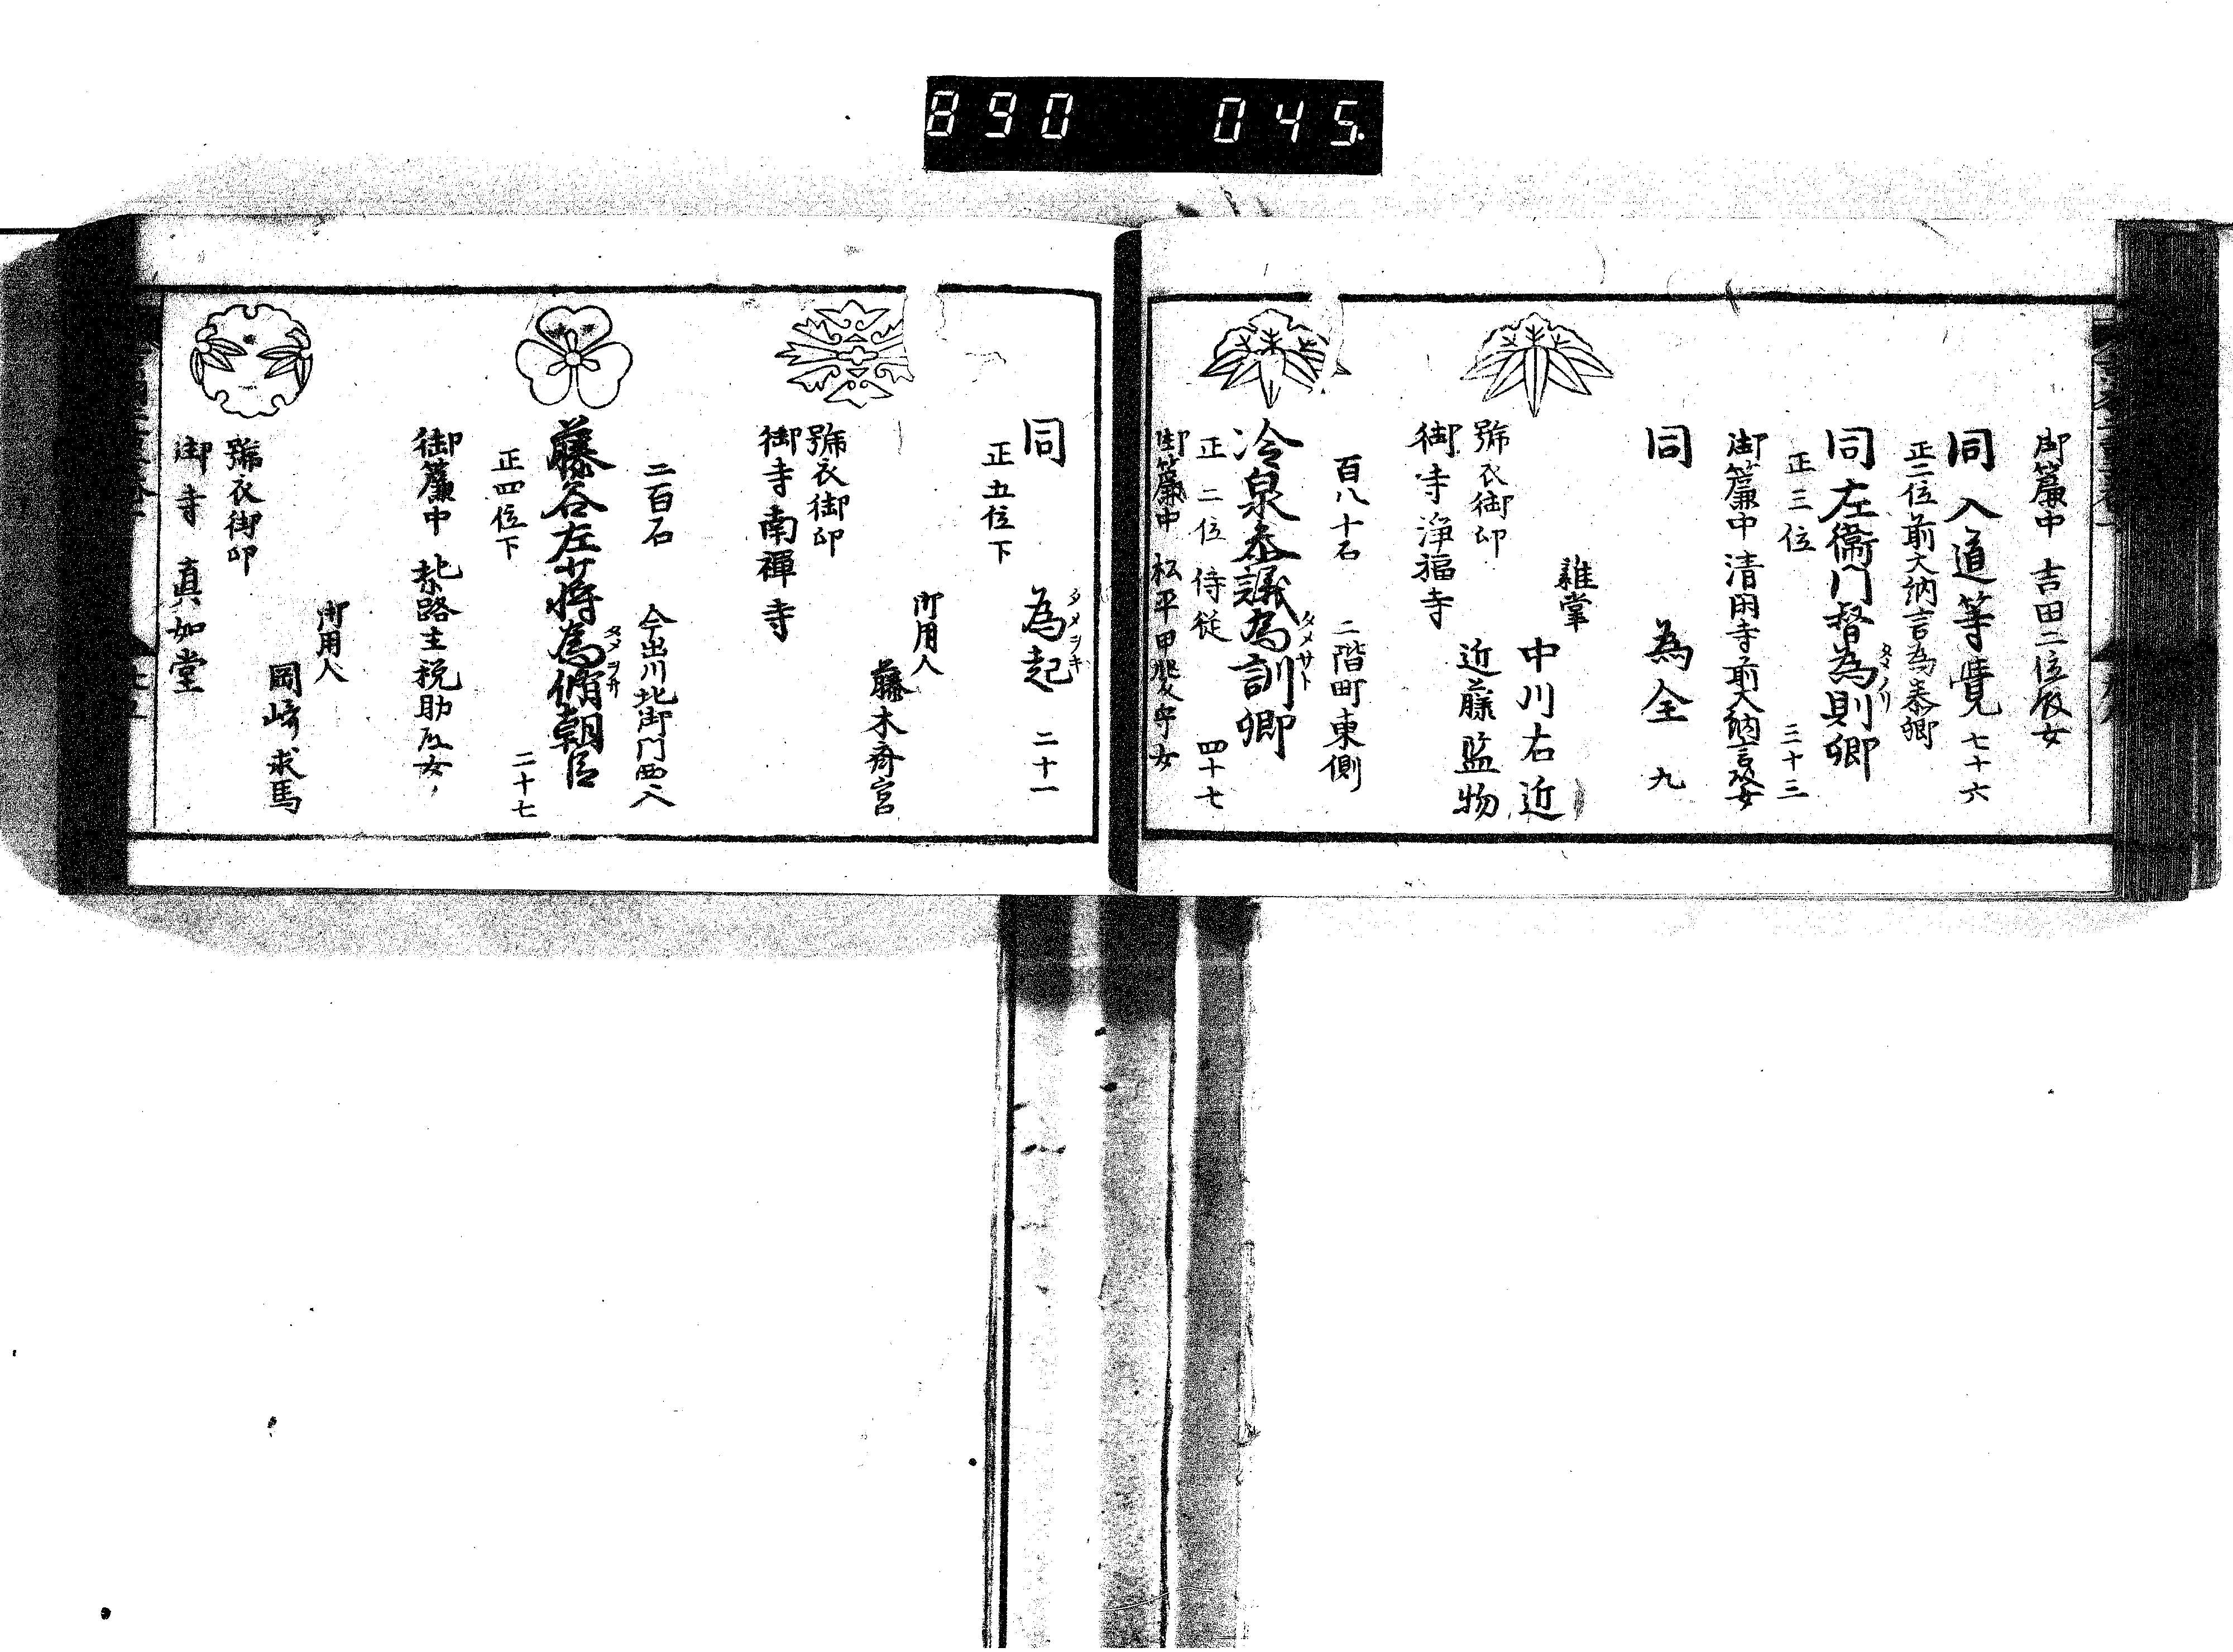 890 045
御簾中 吉田二位殿女
同 入道等覺 七十六
正二位前大納言為泰卿
同左衞門督為則卿 三十三
タメノリ
正三位
御簾中 清閑寺前大納言殿女
同 為全 九
雜掌
中川右近
近藤監物
號衣御印
御寺 浄福寺
百八十石 二階町東側
冷泉参議為訓卿
タメサト
正二位 侍従 四十七
御簾中 松平甲斐守女
同 為起 二十一
タメヲキ
正五位下
御用人
藤木斎宮
號衣御印
御寺南禪寺
二百石 今出川北御門西入
藤谷左少将為脩朝臣
正四位下 二十七
御簾中 𛀁路主税助殿女
御用人
岡崎求馬
號衣御印
御寺 真如堂